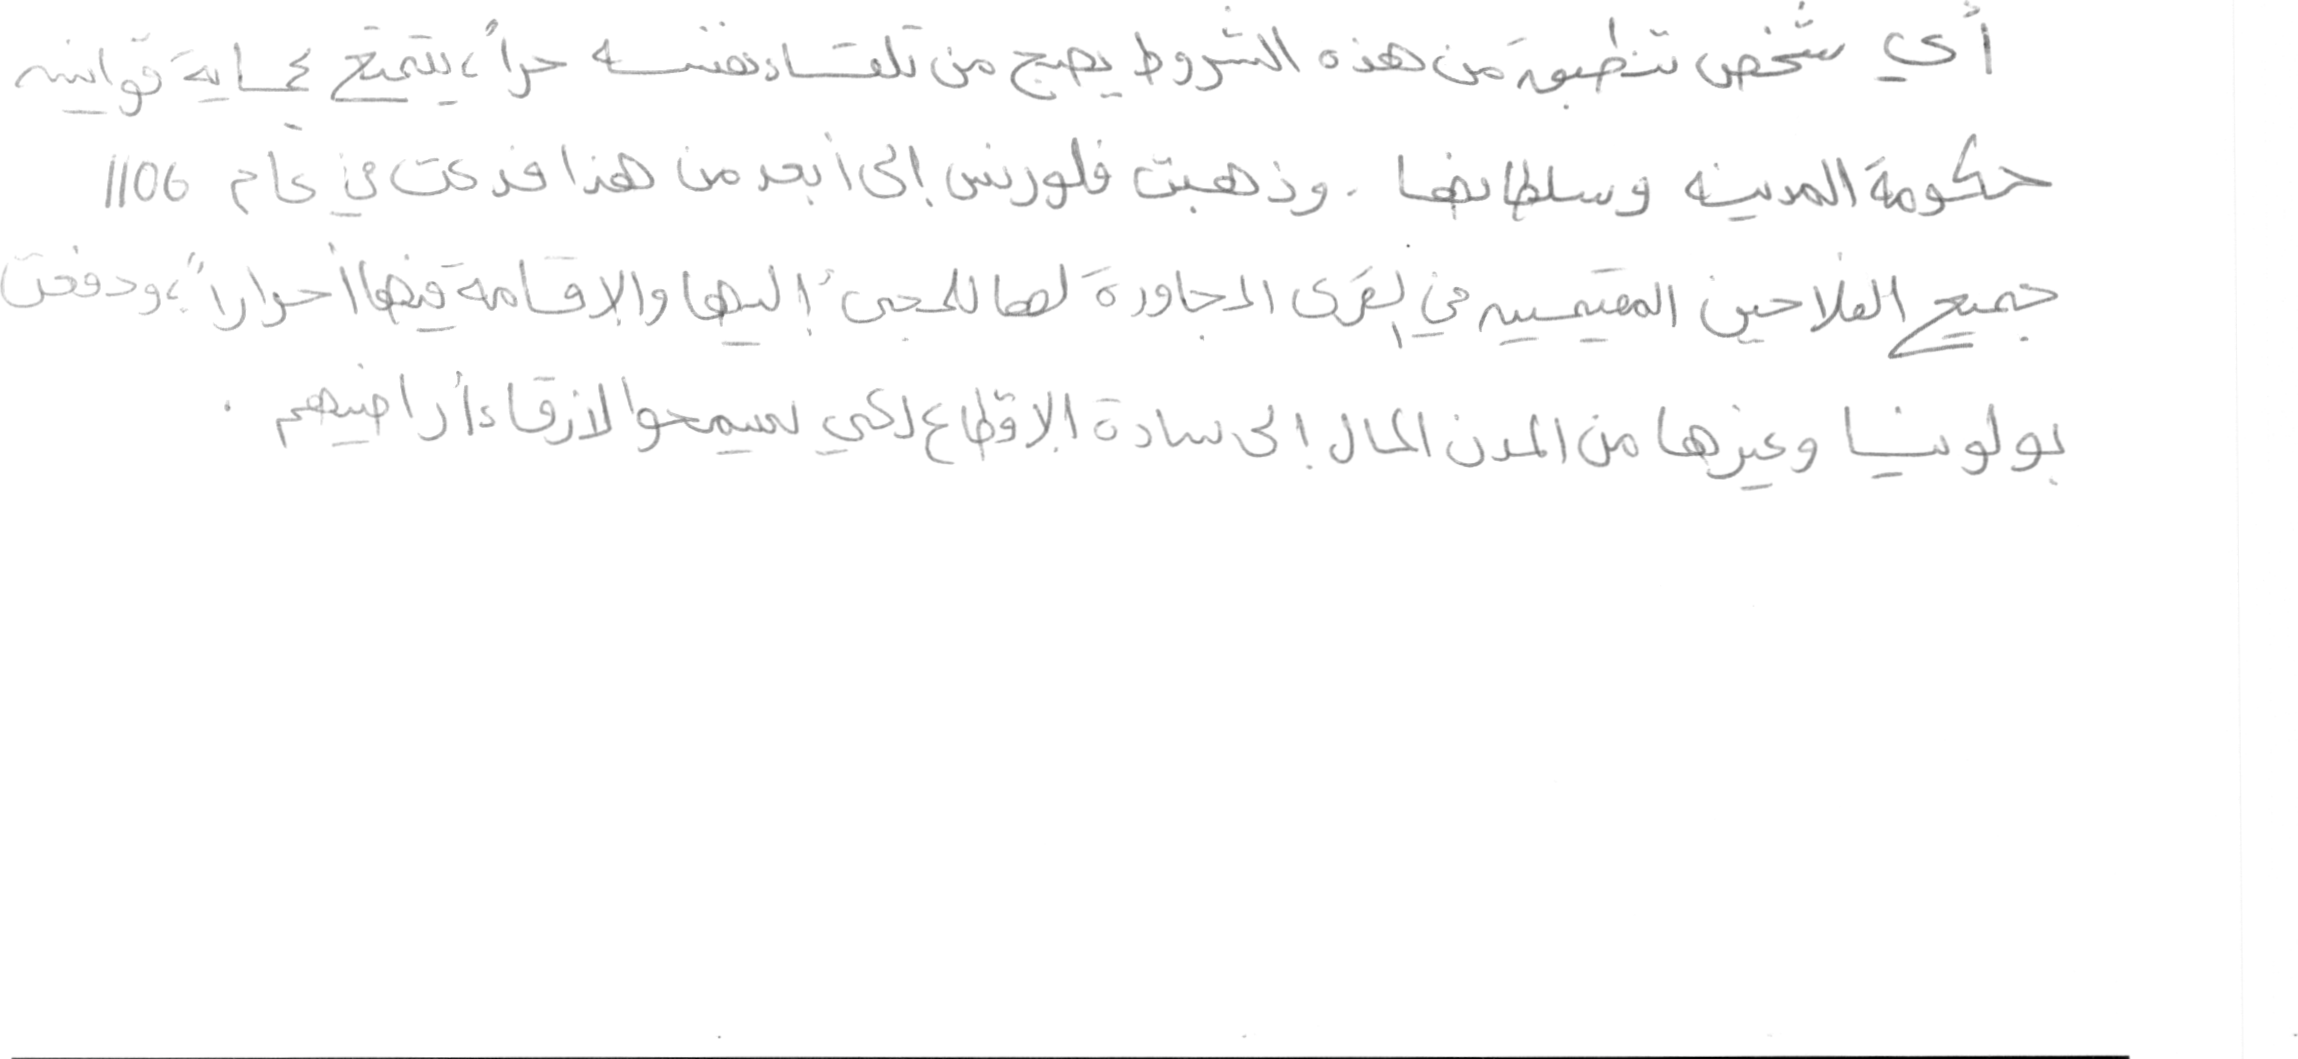 أي شخص تنطبق من هذه الشروط يصبح من تلقاء نفسه حراً، يتمتع بحماية قوانين
حكومة المدينة وسلطانها. وذهبت فلورنس إلى أبعد من هذا فدعت في عام 1106
جميع الفلاحين المقيمين في القرى المجاورة لها للمجئ إليها والإقامة فيها أحراراً، ودفعت
بولونيا وغيرها من المدن المال إلى سادة الإقطاع لكي يسمحوا لأرقاء أراضيهم.